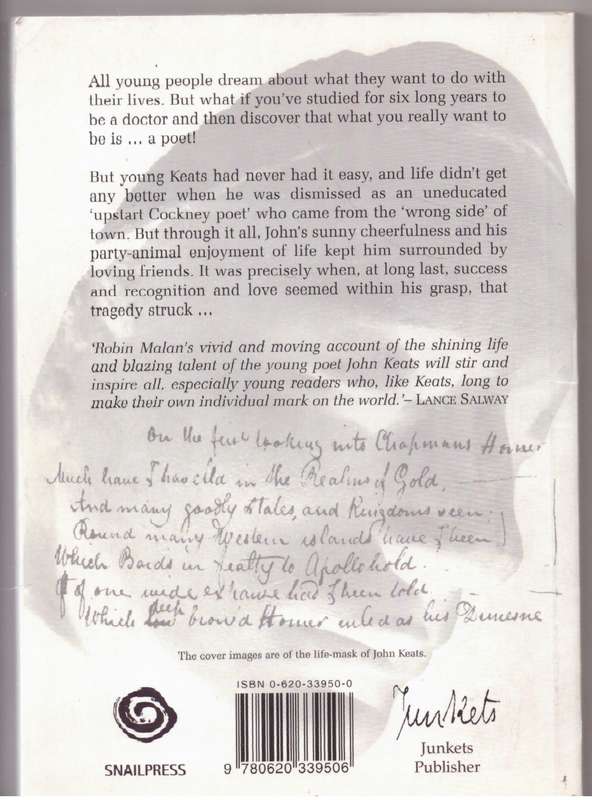 All young people dream about what they want to do with
their lives. But what if you've studied for six long years to
be a doctor and then discover that what you really want to
be is ... a poet!
But young Keats had never had it easy, and life didn't get
any better when he was dismissed as an uneducated
'upstart Cockney poet' who came from the 'wrong side' of
town. But through it all, John's sunny cheerfulness and his
party-animal enjoyment of life kept him surrounded by
loving friends. It was precisely when, at long last, success
and recognition and love seemed within his grasp, that
tragedy struck ...
'Robin Malan's vivid and moving account of the shining life
and blazing talent of the young poet John Keats will stir and
inspire all, especially young readers who, like Keats, long to
make their own individual mark on the world.'– LANCE SALWAY
On the first looking into Chapmans Homer
Much have I travell'd in the Realms of Gold,
And many goodly States, and Kingdoms seen;
Round many Western islands have I been
Which Bards in fealty to Apollo hold.
Of one wide expanse had I been told
Which deep brow'd Homer ruled as his Demesne
The cover images are of the life-mask of John Keats.
ISBN 0-620-33950-0
9 780620 339506
SNAILPRESS
Junkets
Junkets
Publisher